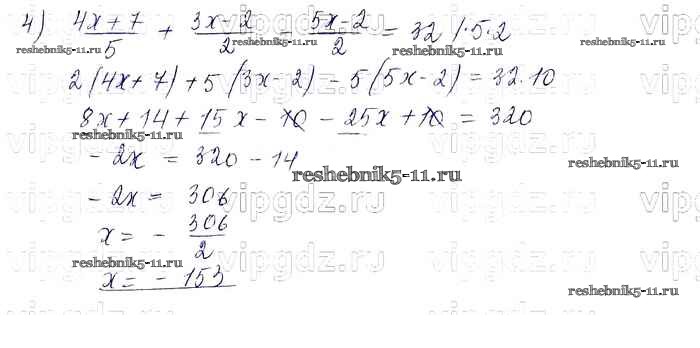 4) (4x+7)/5 + (3x-2)/2 - (5x-2)/2 = 32 /·5·2
2(4x+7)+5(3x-2)-5(5x-2)=32·10
8x+14+15x-10-25x+10=320
-2x=320-14
-2x=306
x=-306/2
x=-153
reshebnik5-11.ru
reshebnik5-11.ru
reshebnik5-11.ru
reshebnik5-11.ru
reshebnik5-11.ru
reshebnik5-11.ru
reshebnik5-11.ru
vipgdz.ru
vipgdz.ru
vipgdz.ru